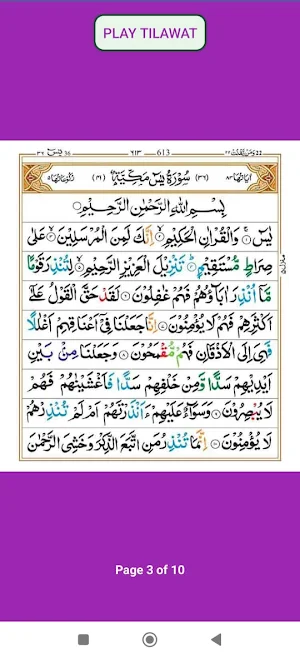 PLAY TILAWAT
يٰسٓ 36
613 — ٦١٣
وَمَن يَقْنُتْ ٢٢
اٰيَاتُهَا ٨٣ (٣٦) سُوْرَةُ يٰسٓ مَكِّيَّةٌ (٤١) رُكُوْعَاتُهَا ٥
بِسْمِ اللّٰهِ الرَّحْمٰنِ الرَّحِيْمِ
يٰسٓ ۚ وَالْقُرْاٰنِ الْحَكِيْمِ ۙ اِنَّكَ لَمِنَ الْمُرْسَلِيْنَ ۙ عَلٰى
صِرَاطٍ مُّسْتَقِيْمٍ ؕ تَنْزِيْلَ الْعَزِيْزِ الرَّحِيْمِ ۙ لِتُنْذِرَ قَوْمًا
مَّاۤ اُنْذِرَ اٰبَآؤُهُمْ فَهُمْ غٰفِلُوْنَ ۞ لَقَدْ حَقَّ الْقَوْلُ عَلٰۤى
اَكْثَرِهِمْ فَهُمْ لَا يُؤْمِنُوْنَ ۞ اِنَّا جَعَلْنَا فِيْۤ اَعْنَاقِهِمْ اَغْلٰلًا
فَهِيَ اِلَى الْاَذْقَانِ فَهُمْ مُّقْمَحُوْنَ ۞ وَجَعَلْنَا مِنْۢ بَيْنِ
اَيْدِيْهِمْ سَدًّا وَّمِنْ خَلْفِهِمْ سَدًّا فَاَغْشَيْنٰهُمْ فَهُمْ
لَا يُبْصِرُوْنَ ۞ وَسَوَآءٌ عَلَيْهِمْ ءَاَنْذَرْتَهُمْ اَمْ لَمْ تُنْذِرْهُمْ
لَا يُؤْمِنُوْنَ ۞ اِنَّمَا تُنْذِرُ مَنِ اتَّبَعَ الذِّكْرَ وَخَشِيَ الرَّحْمٰنَ
Page 3 of 10